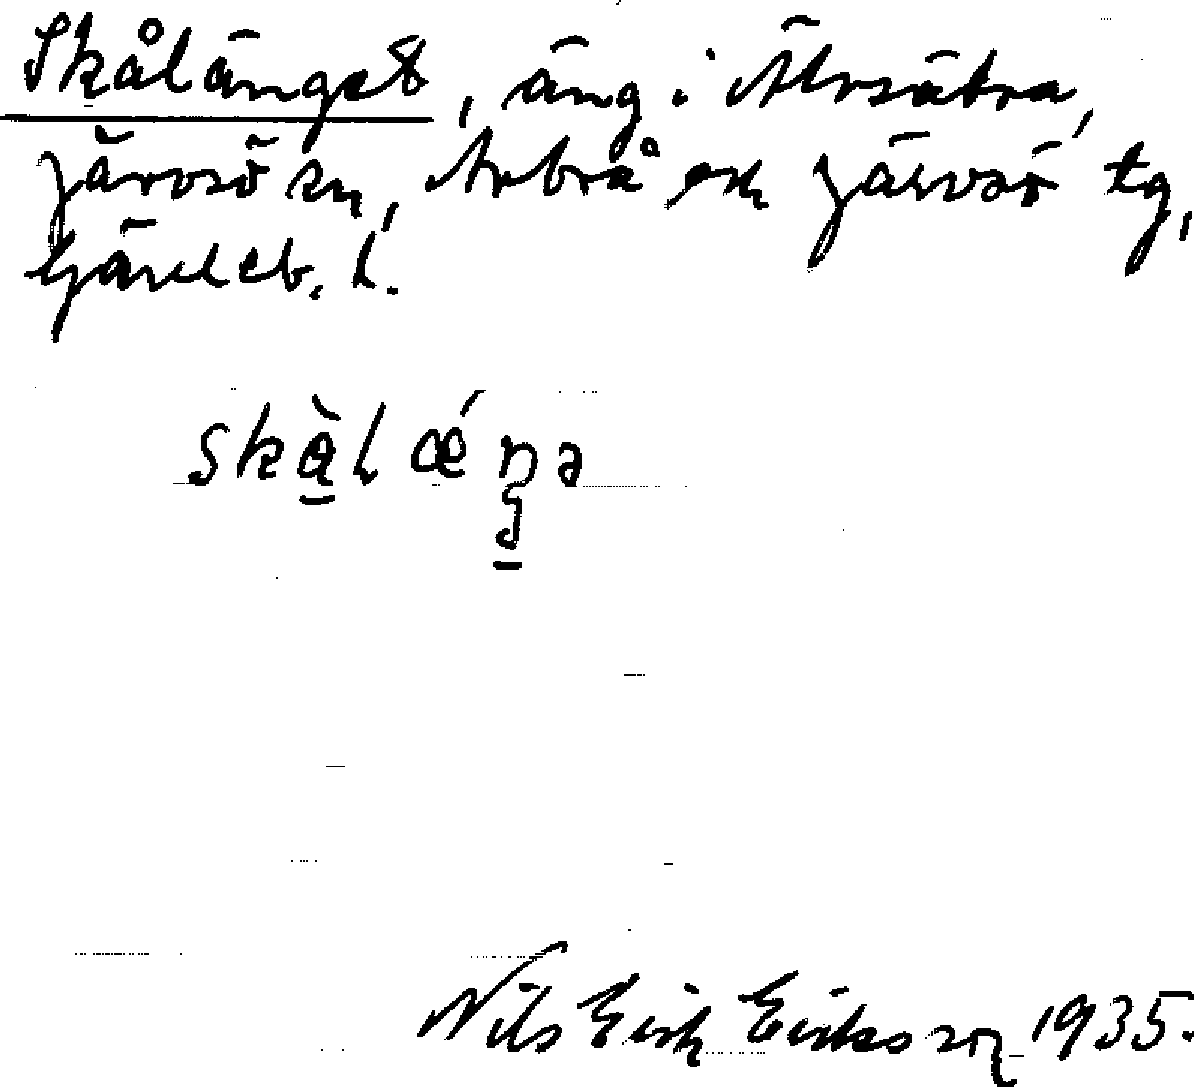 Skålänget, äng i Älvsätra,
Järvsö sn, Arbrå och Järvsö tg,
Gävleb. l.
skålæŋə
Nils Erik Eriksson 1935.